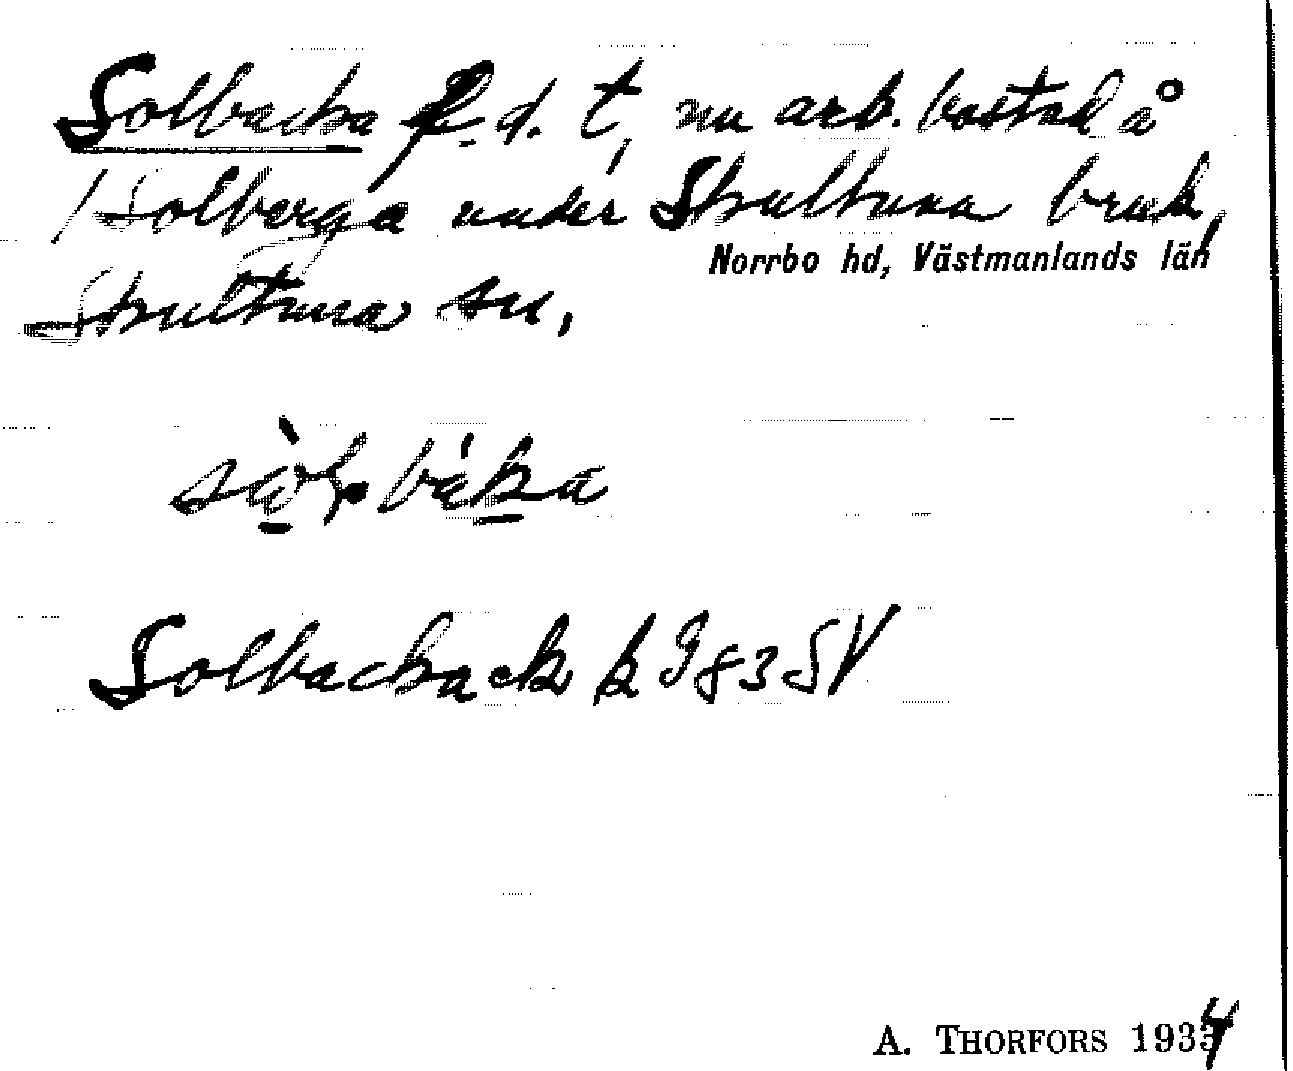 Solbacka f. d. t, nu arb. bostad å
Solberga under Skultuna bruk,
Norrbo hd, Västmanlands län
Skultuna sn,
sò̱ɬbáḵa
Solbacka ek k 983 SV
A. THORFORS 1934